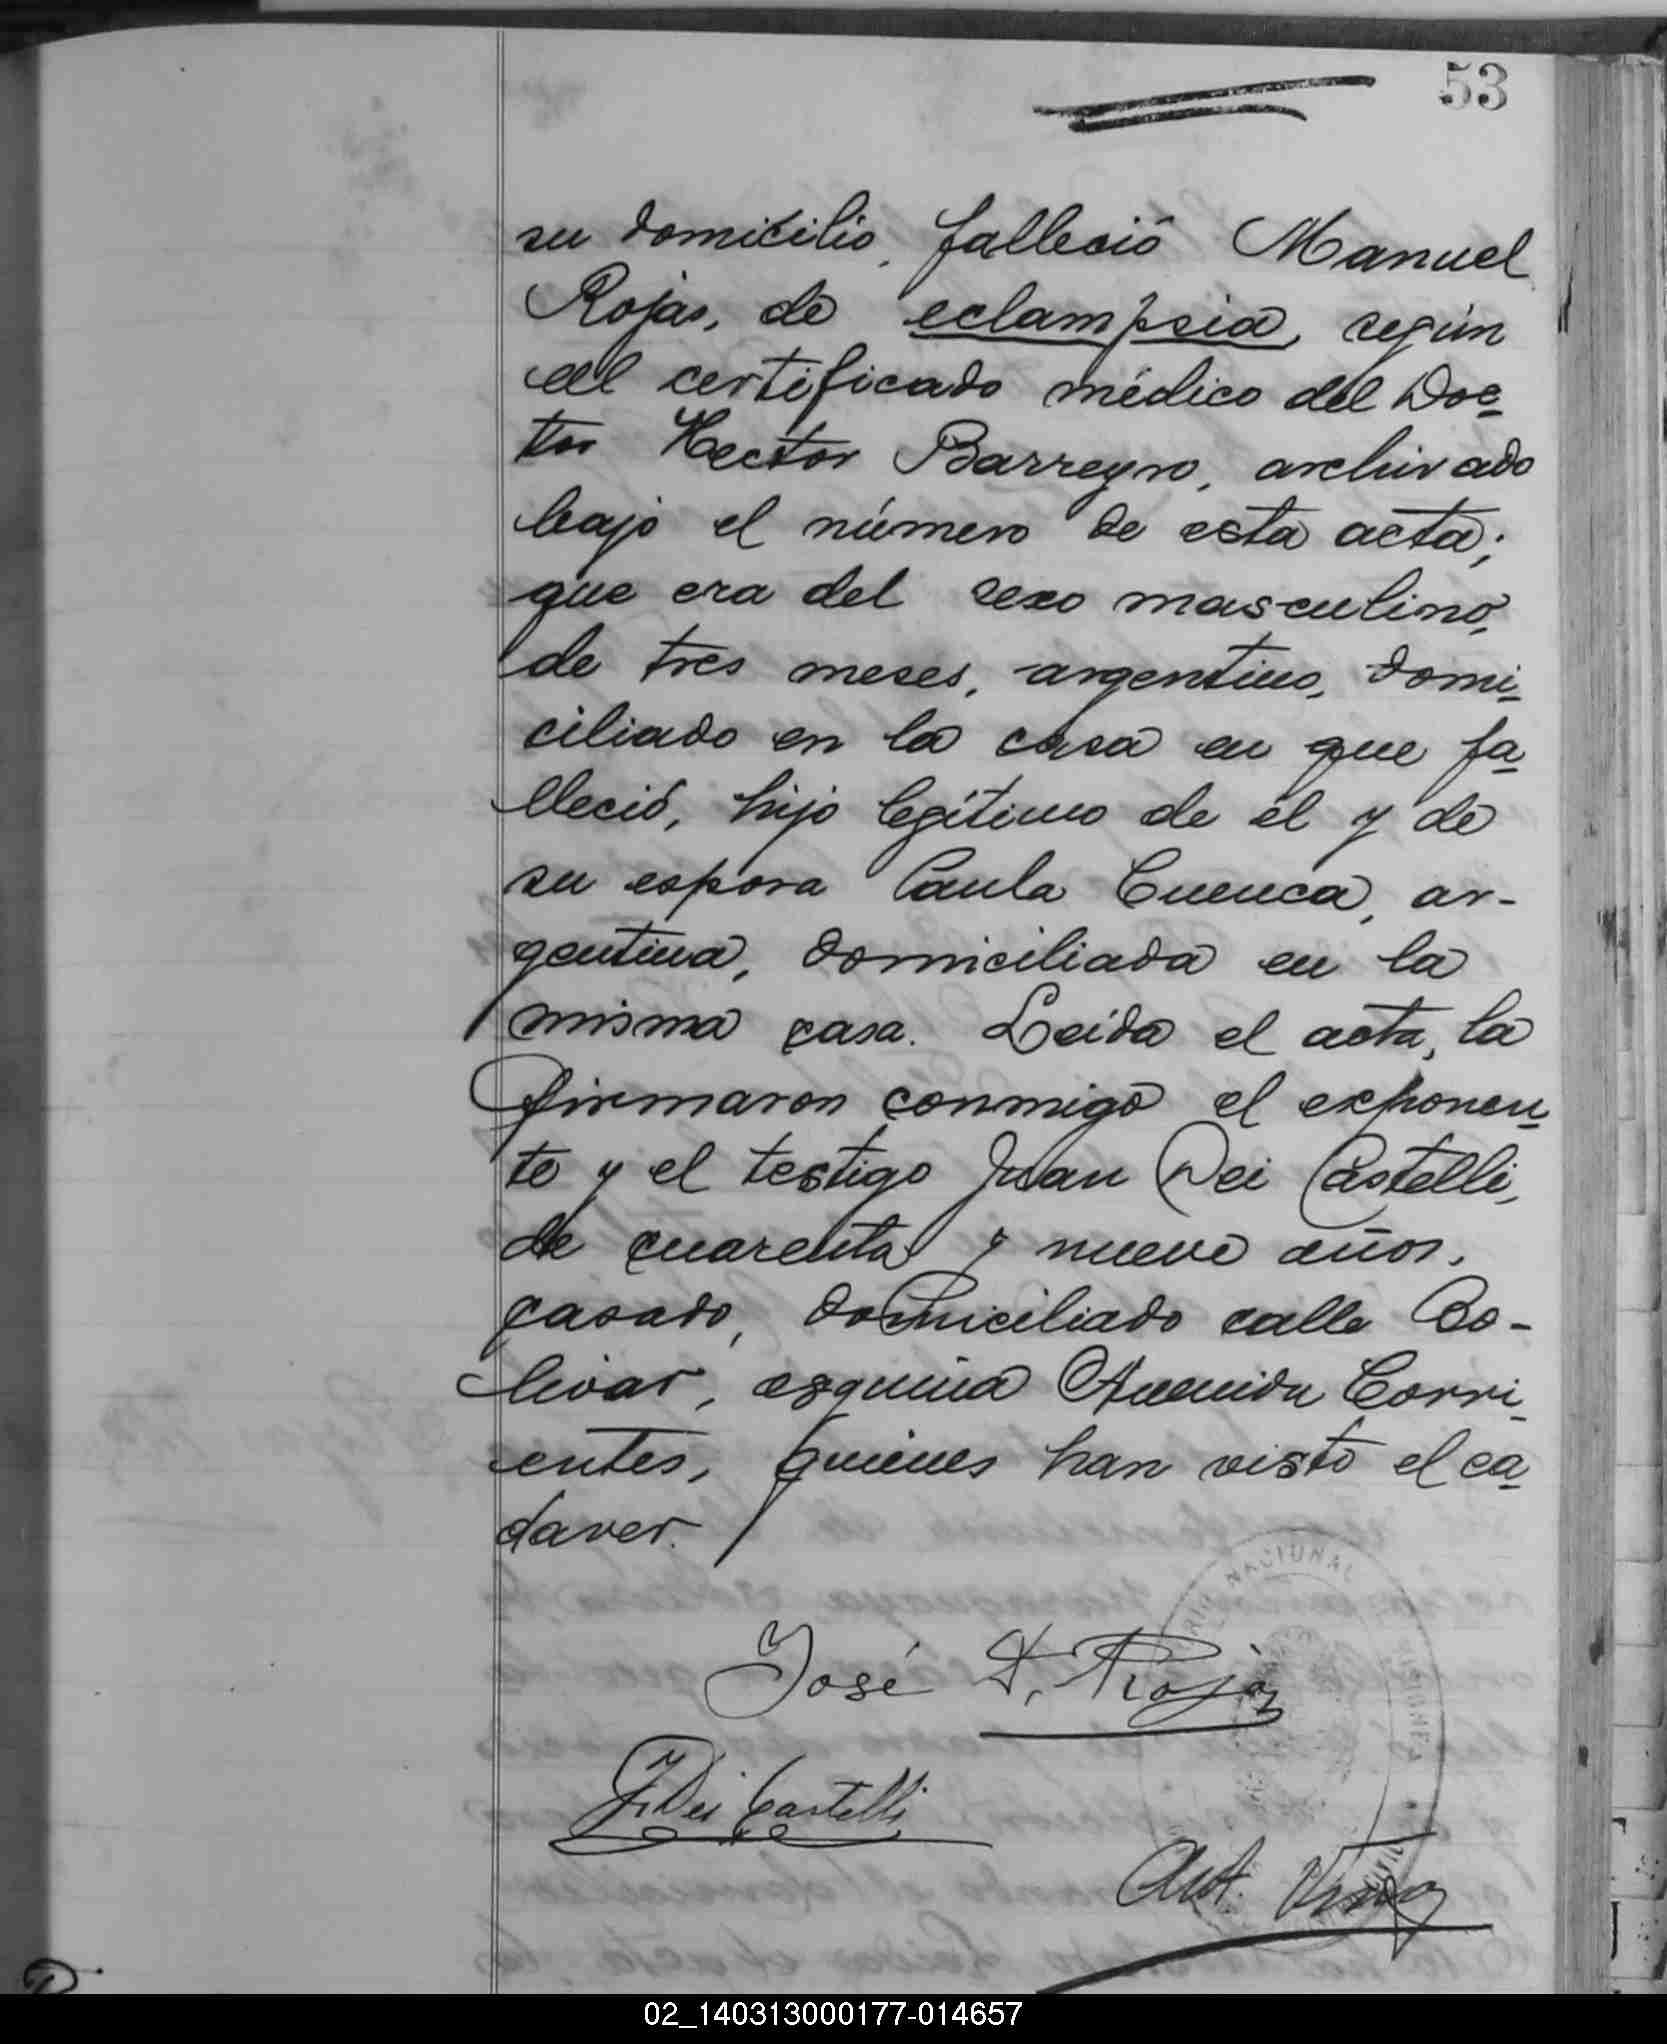 53
su domicilio, falleció Manuel
Rojas, de eclampsia, según
el certificado médico del Doc-
tor Hector Barreyro, archivado
bajo el número de esta acta;
que era del sexo masculino,
de tres meses, argentino, domi-
ciliado en la casa en que fa-
lleció, hijo legítimo de él y de
su esposa Paula Cuenca, ar-
gentina, domiciliada en la
misma casa. Leida el acta, la
firmaron conmigo el exponen-
te y el testigo Juan Dei Castelli,
de cuarenta y nueve años,
casado, domiciliado calle Bo-
livar, esquina Avenida Corri-
entes, quienes han visto el ca-
daver.
NACIONAL
José D. Rojas
J. Dei Castelli
Ant.
02_140313000177-014657